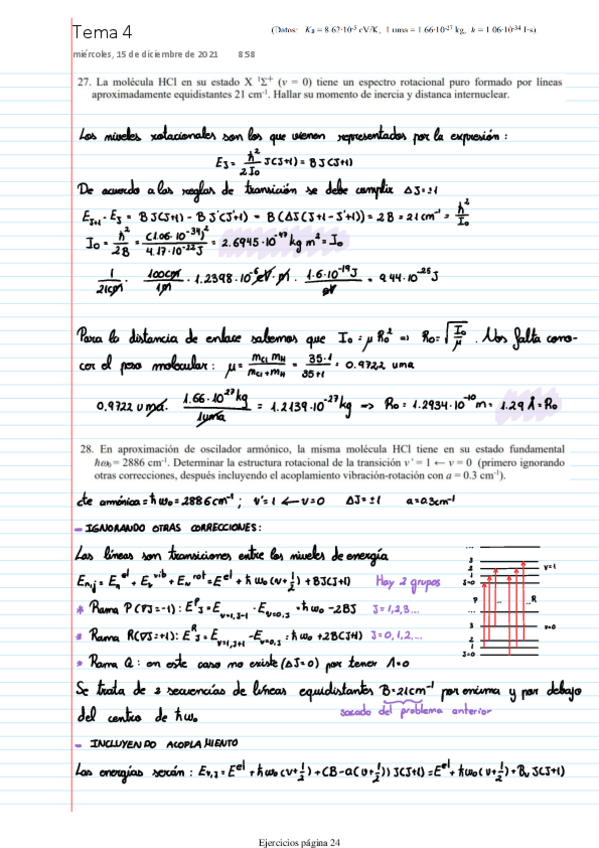 Tema 4
(Datos: K_B = 8.67·10⁻⁵ eV/K, 1 uma = 1.66·10⁻²⁷ kg, ħ = 1.06·10⁻³⁴ J·s)
miércoles, 15 de diciembre de 2021 8:58
27. La molécula HCl en su estado X ¹Σ⁺ (v = 0) tiene un espectro rotacional puro formado por líneas
aproximadamente equidistantes 21 cm⁻¹. Hallar su momento de inercia y distanca internuclear.
Los niveles rotacionales son los que vienen representados por la expresión:
E_J = ħ²/2I₀ J(J+1) = BJ(J+1)
De acuerdo a las reglas de transición se debe cumplir ΔJ=±1
E_J+1 - E_J = BJ(J+1) - BJ'(J'+1) = B(ΔJ(J+1-J'+1)) = 2B = 21cm⁻¹ = ħ²/I₀
I₀ = ħ²/2B = (1.06·10⁻³⁴)²/4.17·10⁻²²J = 2.6945·10⁻⁴⁷ kg m² = I₀
1/21cm · 100cm/1m · 1.2398·10⁻⁶ eV·m · 1.6·10⁻¹⁹J/eV = 9.44·10⁻²⁵J
Para la distancia de enlace sabemos que I₀ = μR₀² => R₀ = √(I₀/μ). Nos falta cono-
cer el peso molecular: μ = m_Cl m_H/m_Cl+m_H = 35·1/35+1 = 0.9722 uma
0.9722 uma · 1.66·10⁻²⁷kg/1uma = 1.2139·10⁻²⁷kg => R₀ = 1.2934·10⁻¹⁰m = 1.29 Å = R₀
28. En aproximación de oscilador armónico, la misma molécula HCl tiene en su estado fundamental
ħω₀ = 2886 cm⁻¹. Determinar la estructura rotacional de la transición v' = 1 ← v = 0 (primero ignorando
otras correcciones, después incluyendo el acoplamiento vibración-rotación con a = 0.3 cm⁻¹).
cte armónica = ħω₀ = 2886cm⁻¹; v'=1 ← v=0 ΔJ=±1 a=0.3cm⁻¹
- IGNORANDO OTRAS CORRECCIONES:
Las líneas son transiciones entre los niveles de energía
E_NJ = E_n^el + E_v^vib + E_N^rot = E^el + ħω₀(v+1/2) + BJ(J+1) Hay 2 grupos
* Rama P (∇J=-1): E_J^P = E_v=1,J-1 - E_v=0,J = ħω₀ - 2BJ J=1,2,3...
* Rama R (∇J=+1): E_J^R = E_v=1,J+1 - E_v=0,J = ħω₀ + 2B(J+1) J=0,1,2,...
* Rama Q: en este caso no existe (ΔJ=0) por tener Λ=0
...
3
2
1
J=0
v=1
P
...
...R
...
3
v=0
2
1
J=0
Se trata de 2 secuencias de líneas equidistantes B=21cm⁻¹ por encima y por debajo
del centro de ħω₀
sacado del problema anterior
- INCLUYENDO ACOPLAMIENTO
Las energías serán: E_v,J = E^el + ħω₀(v+1/2) + (B-a(v+1/2))J(J+1) = E^el + ħω₀(v+1/2) + B_v J(J+1)
Ejercicios página 24